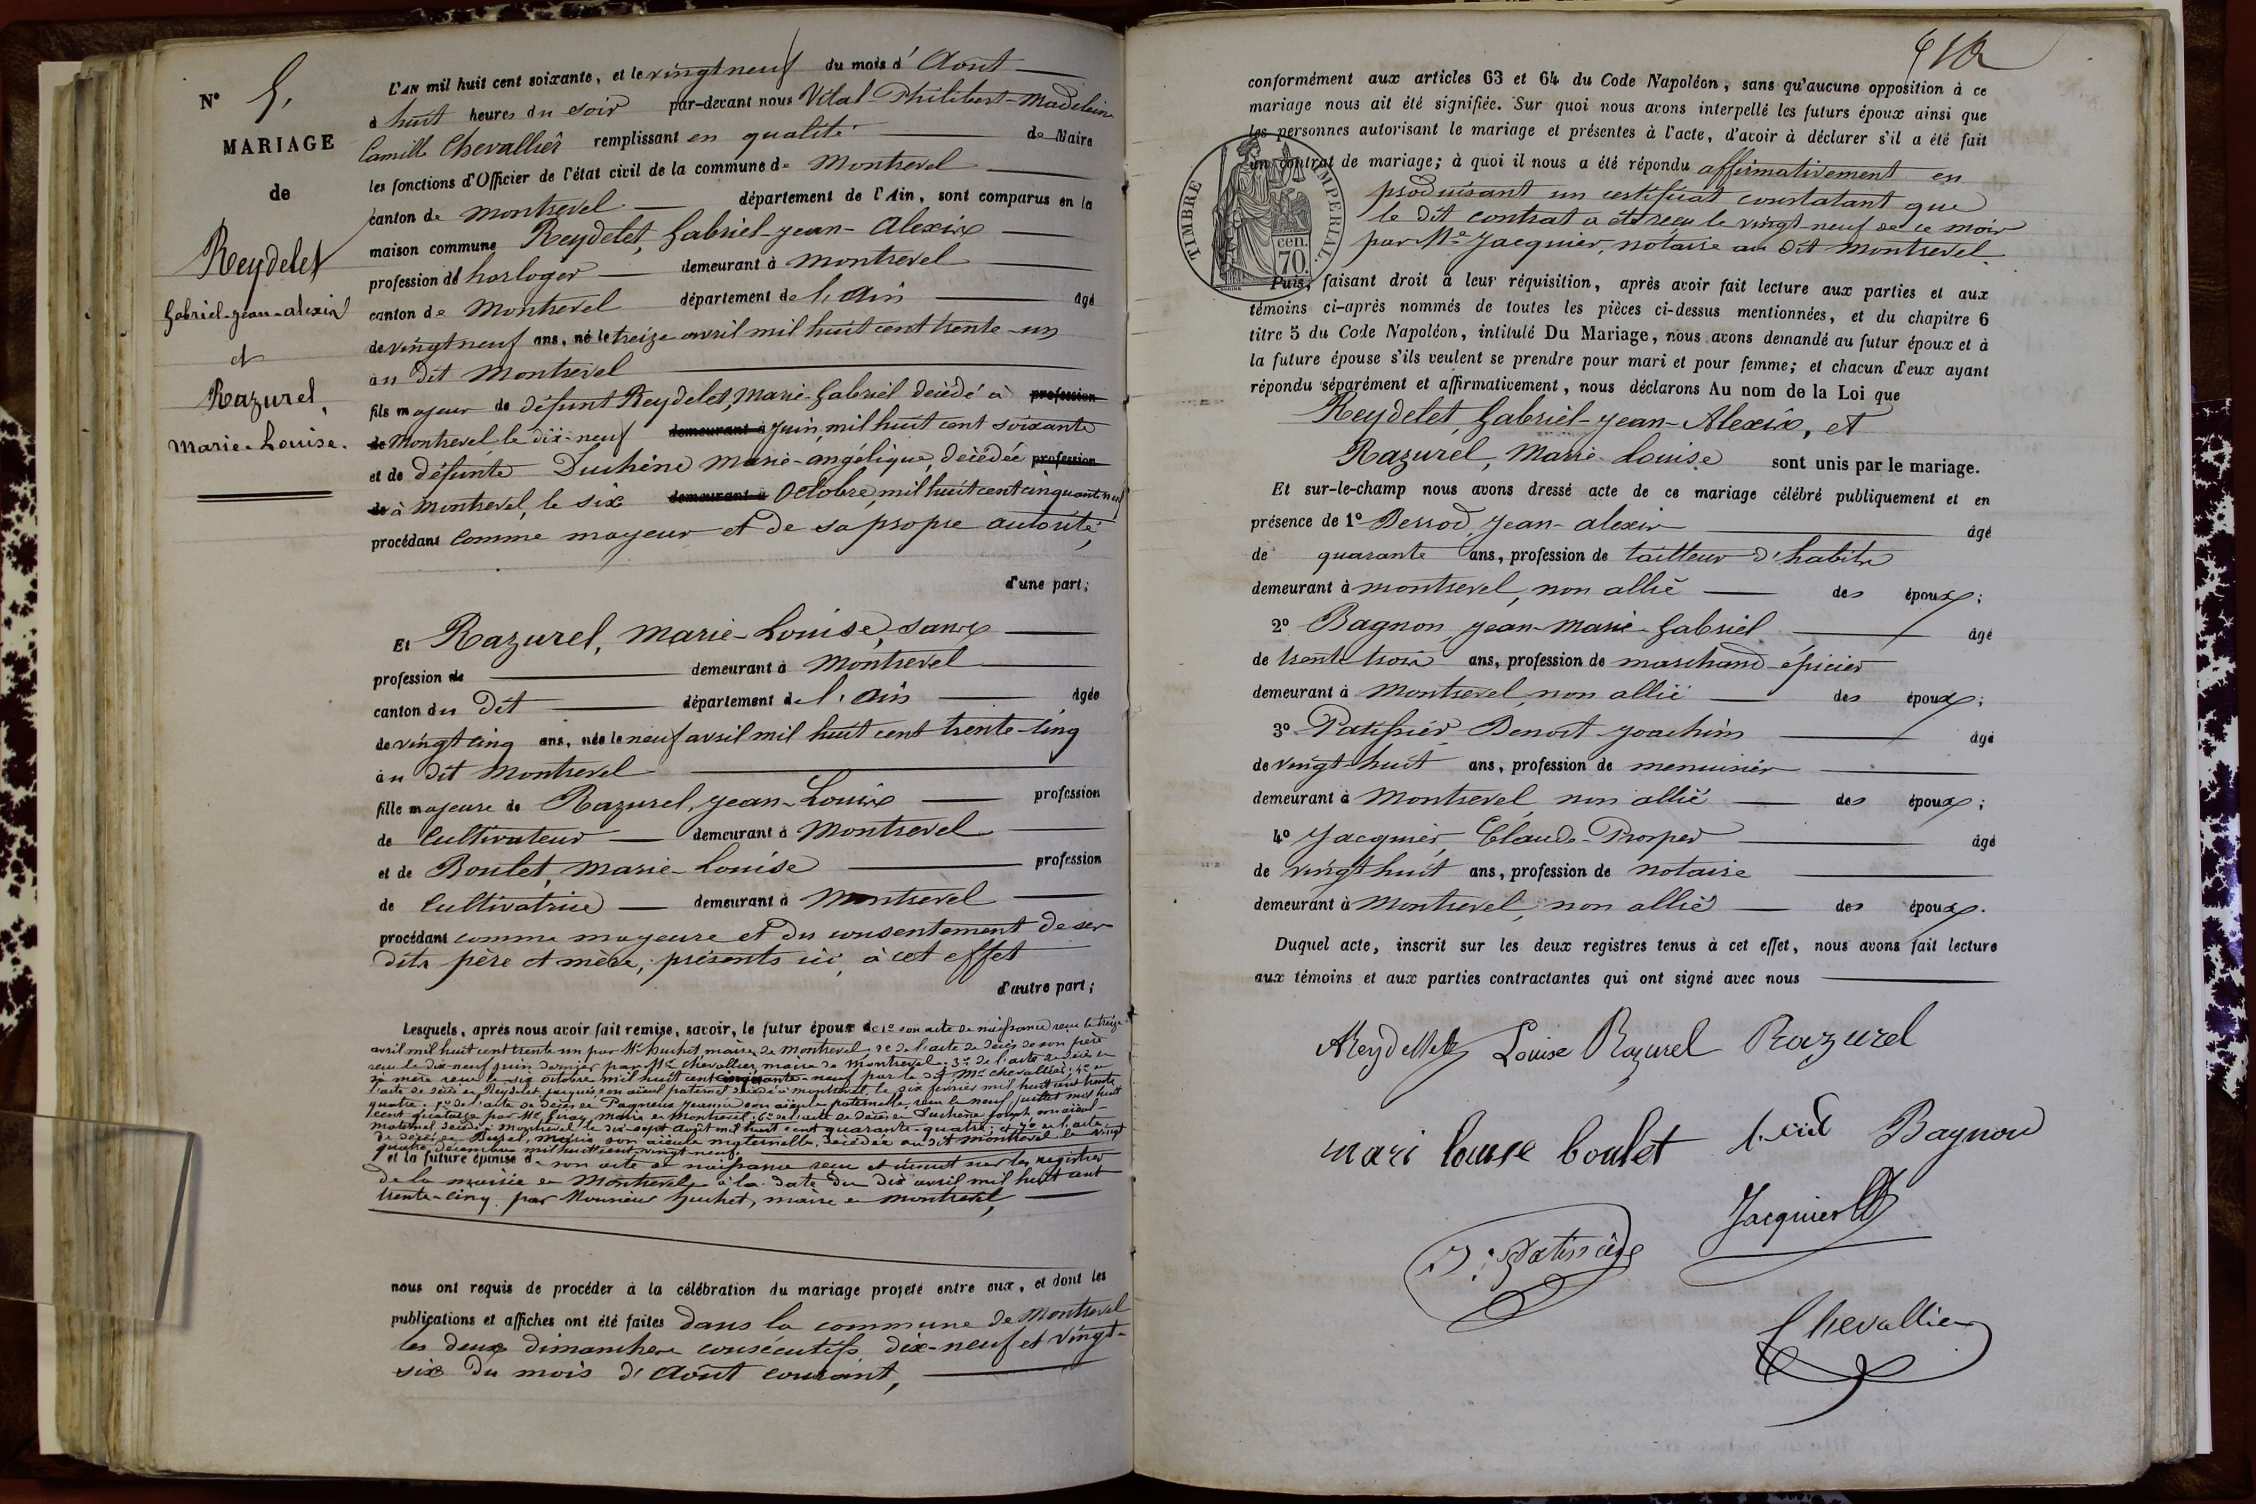 N° 5.
MARIAGE
de
Reydelet
Gabriel-jean-alexix
et
Razurel,
Marie-Louise.
L'AN mil huit cent soixante, et le vingt neuf du mois d'Aout
à huit heures du soir par-devant nous Vital-Philibert-Madelein
Camille Chevallier remplissant en qualité de Maire
les fonctions d'Officier de l'état civil de la commune de Montrevel
canton de Montrevel département de l'Ain, sont comparus en la
maison commune Reydelet, Gabriel-jean-Alexix
profession de horloger demeurant à Montrevel
canton de Montrevel département de l'Ain âgé
de vingt neuf ans, né le treize avril mil huit cent trente-un
au dit Montrevel
fils majeur de défunt Reydelet, Marie-Gabriel décédé à profession
de Montrevel le dix-neuf demeurant à juin, mil huit cent soixante
et de défunte Duchêne Marie-angélique, décédée profession
de à Montrevel, le six demeurant à Octobre, mil huit cent cinquant neuf
procédant comme majeur et de sa propre autorité,
d'une part;
Et Razurel, Marie-Louise, sans
profession de demeurant à Montrevel
canton du dit département de l'Ain âgée
de vingt cinq ans, née le neuf avril mil huit cent trente-cinq
au dit Montrevel
fille majeure de Razurel, jean-Louis profession
de Cultivateur demeurant à Montrevel
et de Boulet, Marie-Louise profession
de Cultivatrice demeurant à Montrevel
procédant comme majeure et du consentement de ses
dits père et mère, présents ici à cet effet
d'autre part;
Lesquels, après nous avoir fait remise, savoir, le futur époux de 1° son acte de naissance reçu le treize
avril mil huit cent trente un par Mr Huchet maire de Montrevel, 2° de l'acte de décès de son père
reçu le dix-neuf juin dernier par Mr Chevallier, maire de Montrevel, 3° de l'acte de décès de
sa mère reçu le six octobre mil huit cent cinquante-neuf par le dit Mr Chevallier; 4° de
l'acte de décès de Reydelet, jacques, son aïeul paternel décédé à Montrevel le six février mil huit cent trente
quatre; 5° de l'acte de décès de son aïeule paternelle, reçu le neuf juillet mil huit
cent quatorze par Mr maire de Montrevel; 6° de l'acte de décès de Duchêne, joseph, son aïeul
maternel décédé à Montrevel le dix-sept Août mil huit cent quarante-quatre; et 7° de l'acte
de décès de son aïeule maternelle, décédée au dit Montrevel le vingt
quatre décembre mil huit cent vingt neuf.
et la future épouse de son acte de naissance reçu et inscrit sur les registres
de la mairie de Montrevel à la date du dix avril mil huit cent
trente-cinq par Monsieur Huchet, maire de Montrevel,
nous ont requis de procéder à la célébration du mariage projeté entre eux, et dont les
publications et affiches ont été faites dans la commune de Montrevel
les deux dimanches consécutifs dix-neuf et vingt-
six du mois d'Août courant,
conformément aux articles 63 et 64 du Code Napoléon, sans qu'aucune opposition à ce
mariage nous ait été signifiée. Sur quoi nous avons interpellé les futurs époux ainsi que
les personnes autorisant le mariage et présentes à l'acte, d'avoir à déclarer s'il a été fait
un contrat de mariage; à quoi il nous a été répondu affirmativement en
produisant un certificat constatant que
le dit contrat a été reçu le vingt neuf de ce mois
par Me Jacquier, notaire au dit Montrevel.
TIMBRE IMPERIAL.
cen.
70.
Puis, faisant droit à leur réquisition, après avoir fait lecture aux parties et aux
témoins ci-après nommés de toutes les pièces ci-dessus mentionnées, et du chapitre 6
titre 5 du Code Napoléon, intitulé Du Mariage, nous avons demandé au futur époux et à
la future épouse s'ils veulent se prendre pour mari et pour femme; et chacun d'eux ayant
répondu séparément et affirmativement, nous déclarons Au nom de la Loi que
Reydelet, Gabriel-jean-Alexix, et
Razurel, Marie-Louise sont unis par le mariage.
Et sur-le-champ nous avons dressé acte de ce mariage célébré publiquement et en
présence de 1° Berrod, Jean-alexis âgé
de quarante ans, profession de tailleur d'habits
demeurant à montrevel, non allié des époux;
2° Bagnon, jean-marie-Gabriel âgé
de trente trois ans, profession de marchand-épicier
demeurant à Montrevel, non allié des époux;
3° Patissier Benoit-joachim âgé
de vingt-huit ans, profession de menuisier
demeurant à Montrevel, non allié des époux;
4° Jacquier, Claude-Prosper âgé
de vingt huit ans, profession de notaire
demeurant à Montrevel, non allié des époux.
Duquel acte, inscrit sur les deux registres tenus à cet effet, nous avons fait lecture
aux témoins et aux parties contractantes qui ont signé avec nous
Reydellet Louise Razurel Razurel
mari louise boulet Bagnon
J. Patissier Jacquier
Chevallier